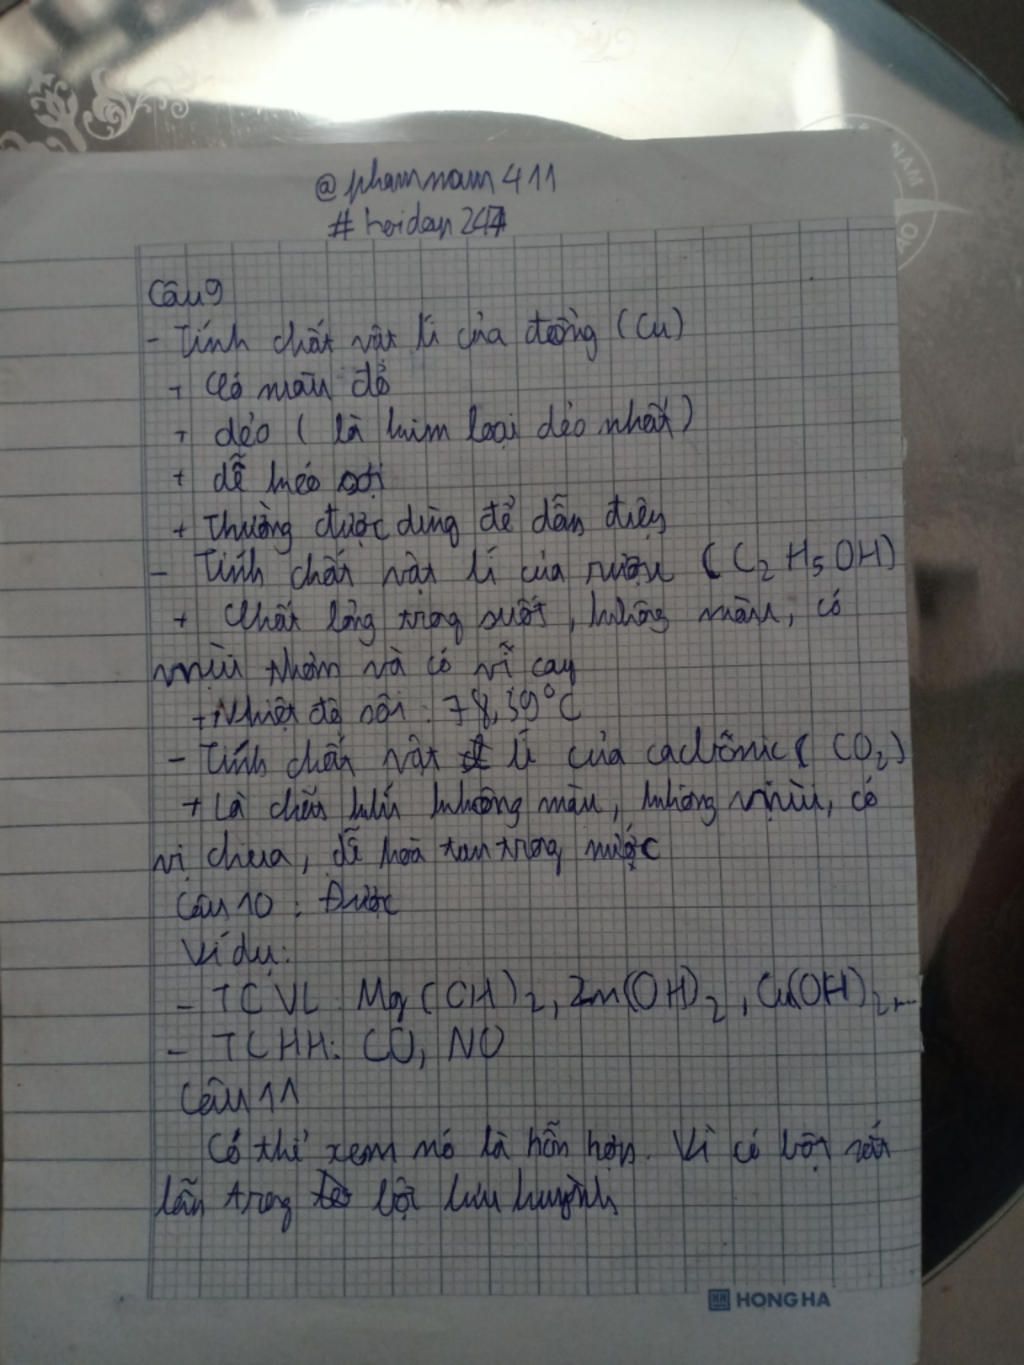 @phamnam411
#hoidap247
NAM
Câu 9
- Tính chất vật lí của đồng (Cu)
+ Có màu đỏ
+ dẻo (là kim loại dẻo nhất)
+ dễ kéo sợi
+ Thường được dùng để dẫn điện
- Tính chất vật lí của rượu (C₂H₅OH)
+ Chất lỏng trong suốt, không màu, có
mùi thơm và có vị cay
+ Nhiệt độ sôi: 78,39°C
- Tính chất vật lí của cacbonic (CO₂)
+ Là chất khí không màu, không mùi, có
vị chua, dễ hoà tan trong nước
Câu 10: Được
Ví dụ:
- TCVL: Mg(OH)₂, Zn(OH)₂, Cu(OH)₂,...
- TCHH: CO, NO
Câu 11
Có thể xem nó là hỗn hợp. Vì có bột sắt
lẫn trong bột lưu huỳnh
HONG HA